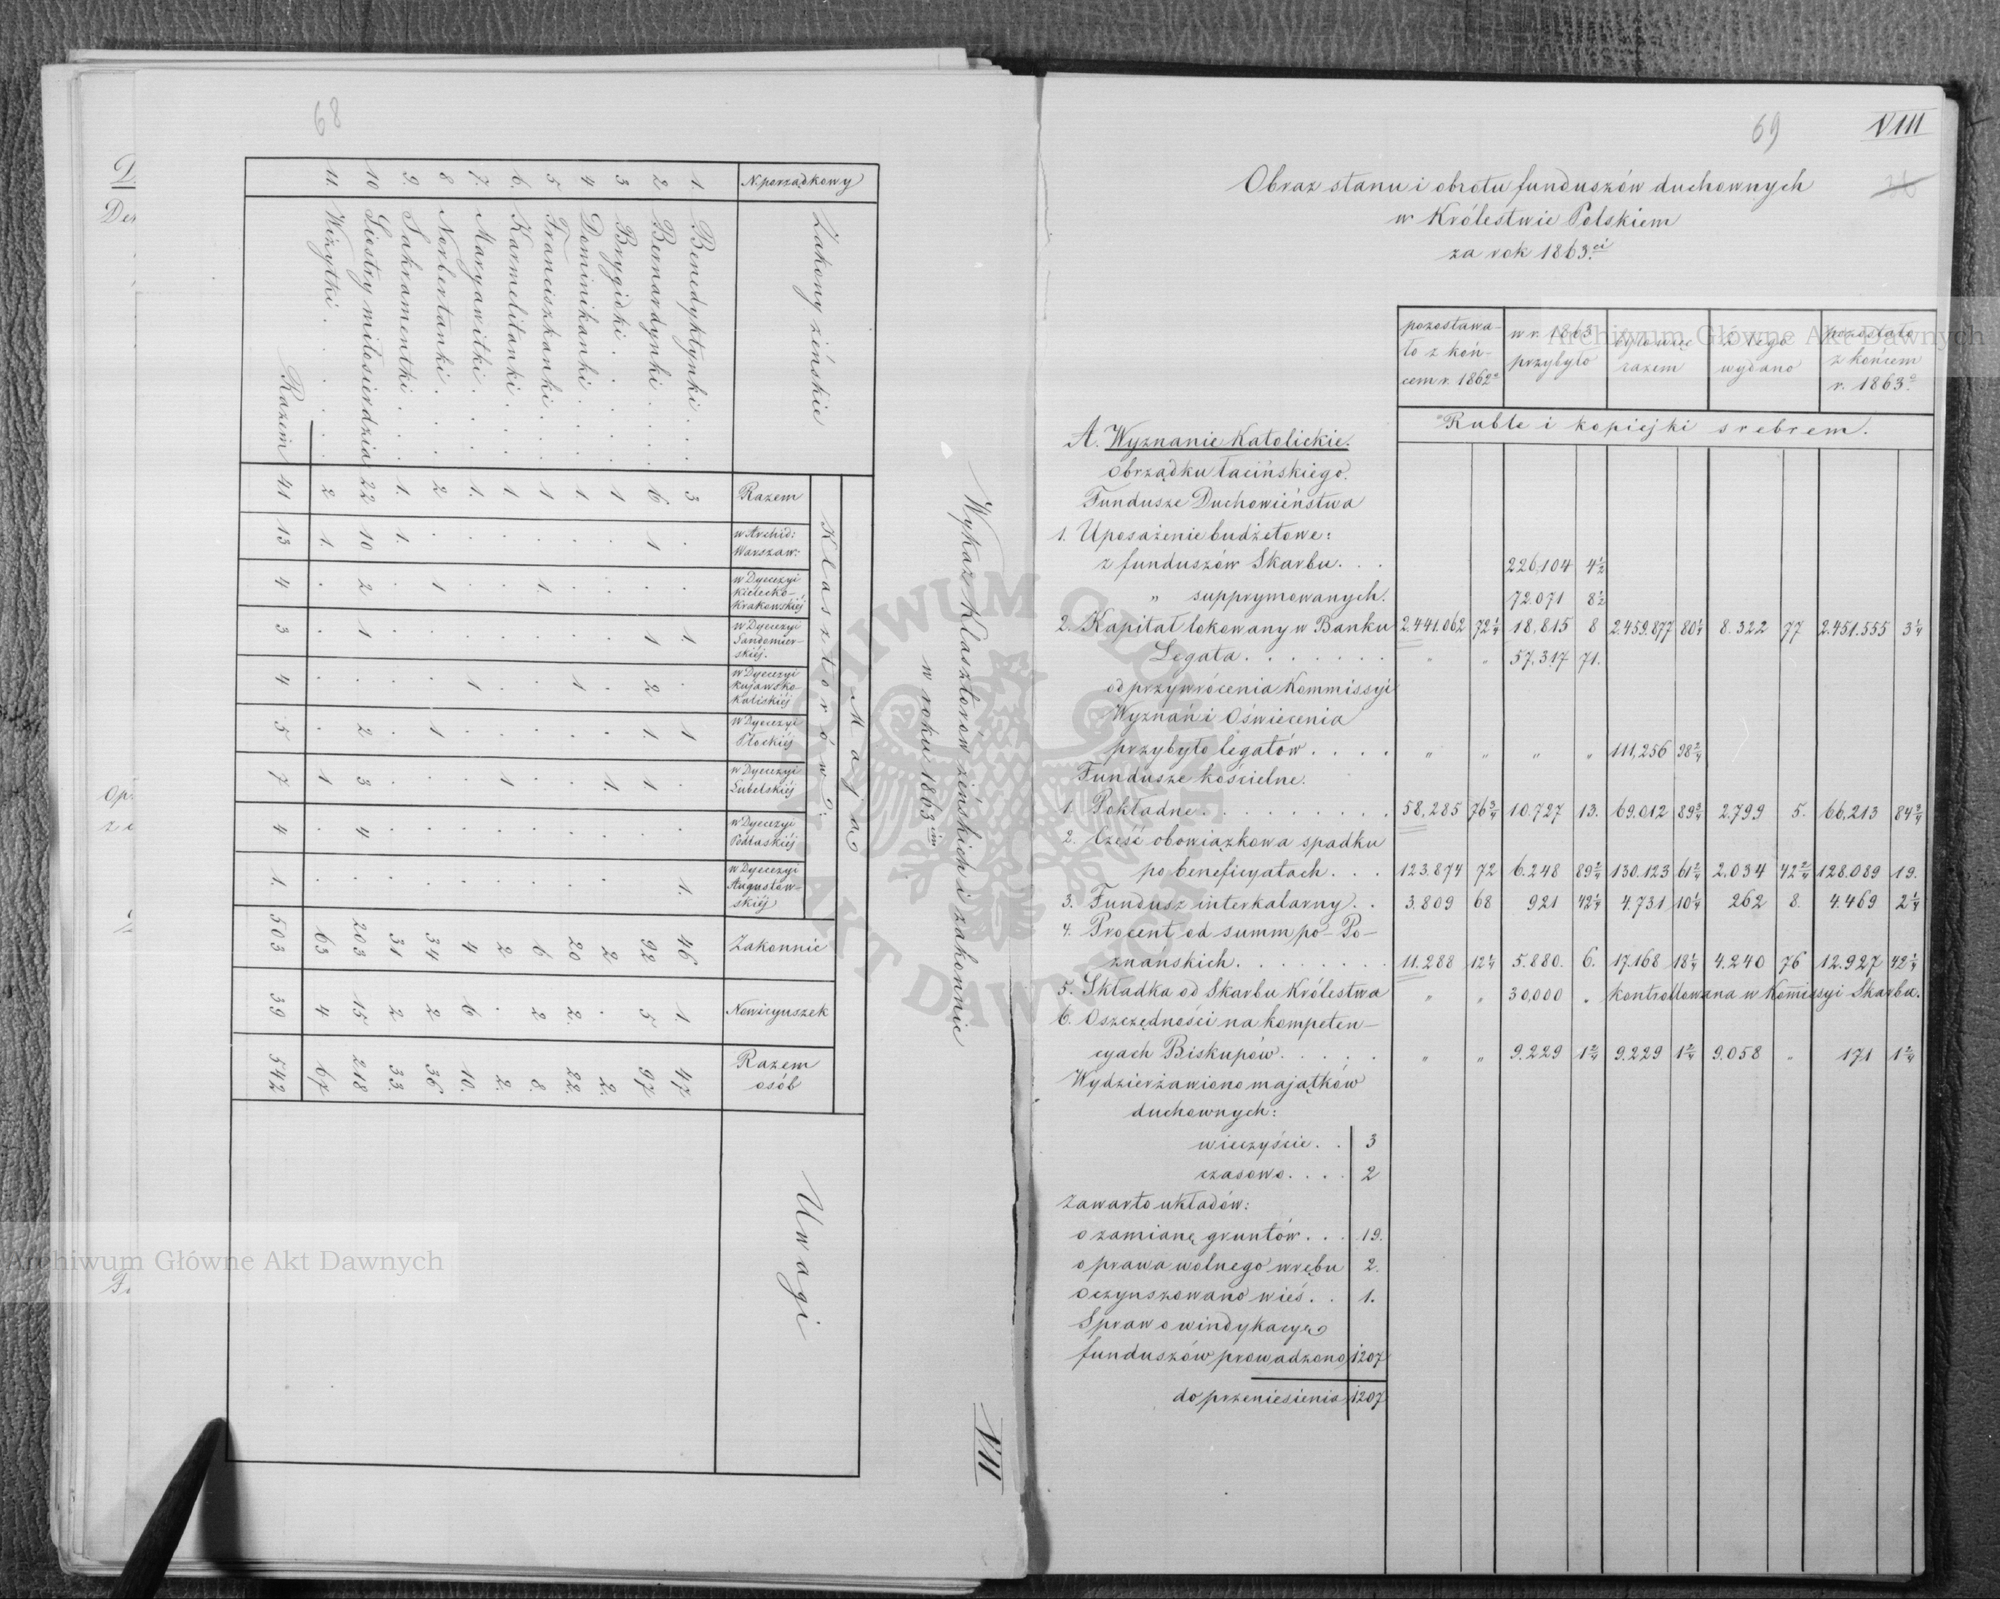 68
VII
Wykaz Klasztorów żeńskich i zakonnic
w roku 1863im
N. porządkowy | Zakony żeńskie | Mają | Uwagi
Klasztorów: | Zakonnic | Nowicyuszek | Razem osób
Razem | w Archid: Warszaw: | w Dyecezyi Kielecko-Krakowskiéj | w Dyecezyi Sandomierskiéj. | w Dyecezyi Kujawsko-Kaliskiéj | w Dyecezyi Płockiéj | w Dyecezyi Lubelskiéj | w Dyecezyi Podlaskiéj | w Dyecezyi Augustowskiéj
1. Benedyktynki . . . 3 . . 1. . 1 . . 1. 46 1. 47.
2. Bernardynki . . . 6 1 . 1 2 1. 1 . . 92 5 97
3 Brygidki . . . 1 . . . . . 1. . . 2 . 2.
4 Dominikanki . . . 1. . . . 1 . . . . 20 2. 22.
5. Franciszkanki . . . 1 . 1. . . . . . . 6 2 8.
6. Karmelitanki . . . 1 . . . . . 1 . . 2 . 2.
7. Maryawitki . . . 1. . . . 1 . . . . 4 6 10.
8 Norbertanki . . . 2 . 1 . . 1 . . . 34 2 36
9. Sakramentki . . . 1. 1. . . . . . . . 31 2 33
10 Siostry miłosierdzia 22 10 2 1 . 2 3 4 . 203 15 218
11. Wizytki . . . 2 1. . . . . 1 . . 63 4 67
Razem 41 13 4 3 4 5 7 4 1. 503 39 542
69
VIII
Obraz stanu i obrotu funduszów duchownych
w Królestwie Polskiem
za rok 1863ci
pozostawało z końcem r. 1862o | w r. 1863 przybyło | było więc razem | z tego wydano | pozostało z końcem r. 1863o
Ruble i kopiejki srebrem.
A. Wyznanie Katolickie.
obrządku łacińskiego.
Fundusze Duchowieństwa
1. Uposażenie budżetowe:
z funduszów Skarbu. . . 226,104 4½
" supprymowanych. 72.071 8½
2. Kapitał lokowany w Banku 2.441.062 72¼ 18,815 8 2.459.877 80¼ 8.322 77 2.451.555 3¼
Legata . . . . . . . " " 57,317 71.
od przywrócenia Kommissyi
Wyznań i Oświecenia
przybyło legatów . . . . " " " " 111,256 98 2/4
Fundusze kościelne.
1. Pokładne . . . . . . . . 58,285 76¾ 10.727 13. 69.012 89¾ 2.799 5. 66,213 84¾
2. Część obowiązkowa spadku
po beneficyatach . . . 123.874 72 6.248 89 2/4 130.123 61 2/4 2.034 42 2/4 128.089 19.
3. Fundusz interkalarny . . 3.809 68 921 42¼ 4.731 10¼ 262 8. 4.469 2¼
4. Procent od summ po-Po-
znańskich. . . . . . . 11.288 12¼ 5.880. 6. 17.168 18¼ 4.240 76 12.927 42¼
5. Składka od Skarbu Królestwa " " 30,000 " kontrollowana w Komissyi Skarbu.
6. Oszczędności na kompeten-
cyach Biskupów. . . . . " " 9.229 1 2/4 9.229 1 2/4 9.058 " 171 1 2/4
Wydzierżawiono majątków
duchownych:
wieczyście . . 3
czasowo. . . . 2
Zawarto układów:
o zamianę gruntów. . . 19.
o prawa wolnego wrębu 2.
oczynszowano wieś . . 1.
Spraw o windykacyę
funduszów prowadzono 1207
do przeniesienia 1207
Archiwum Główne Akt Dawnych
Archiwum Główne Akt Dawnych
ARCHIWUM GŁÓWNE AKT DAWNYCH